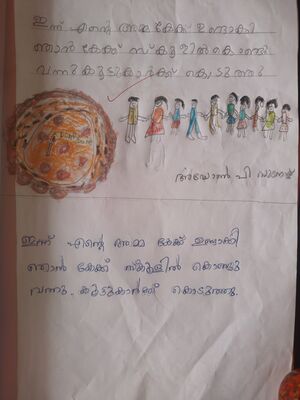 ഇന്ന് എന്റെ അമ്മ കേക്ക് ഉണ്ടാകി
ഞാൻ കേക്ക് സ്കൂളിൽ കൊണ്ടു
വന്നു കൂട്ടുകാർക്ക് കൊടുത്തു
അയോൺ പി
ഇന്ന് എന്റെ അമ്മ കേക്ക് ഉണ്ടാക്കി
ഞാൻ കേക്ക് സ്കൂളിൽ കൊണ്ടു
വന്നു. കൂട്ടുകാർക്ക് കൊടുത്തു.